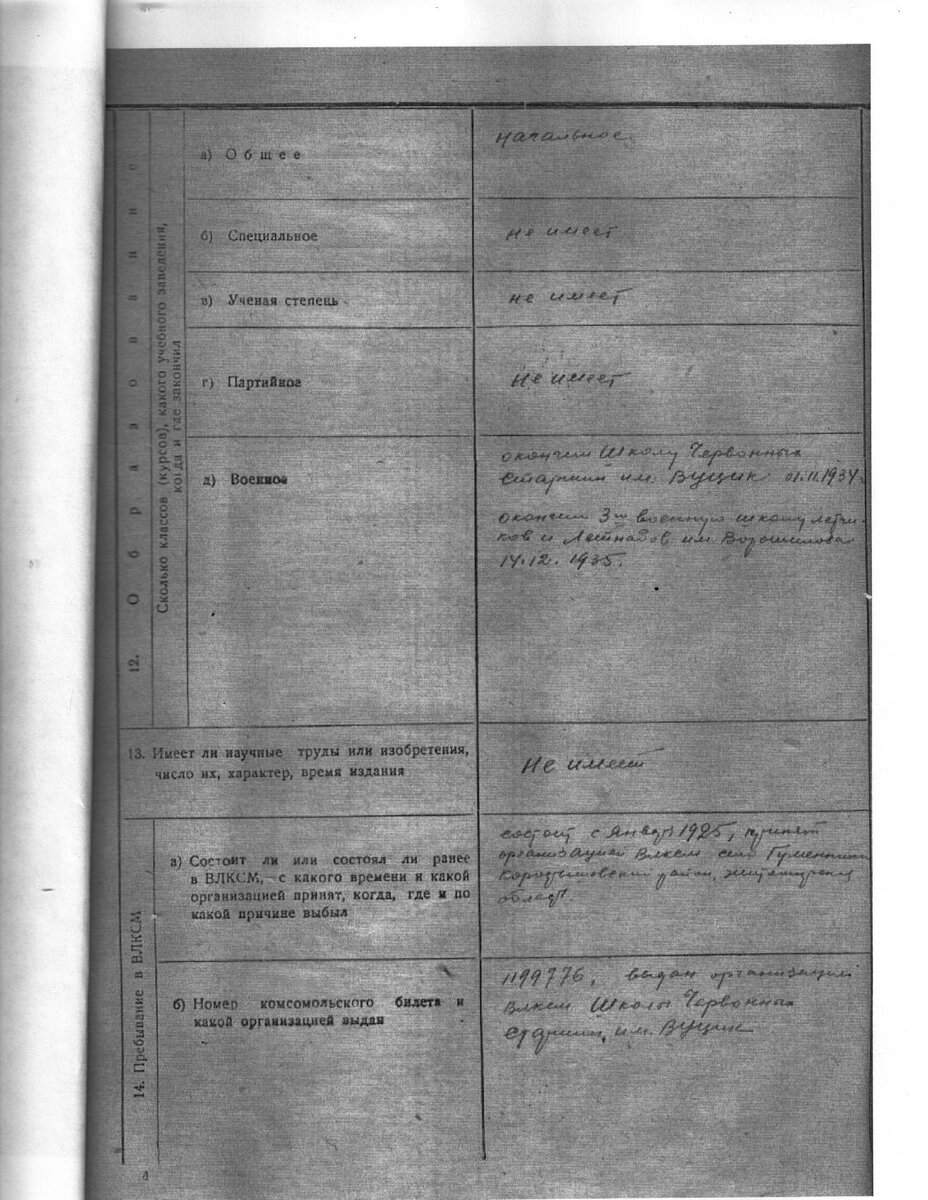 12. Образование
Сколько классов (курсов), какого учебного заведения,
когда и где закончил
а) Общее
начальное
б) Специальное
не имеет
в) Ученая степень
не имеет
г) Партийное
не имеет
д) Военное
окончил Школу Червонных
Старшин им. ВУЦИК 01.11.1934
окончил 3ю военную школу летчи-
ков и Летнабов им Ворошилова
14.12. 1935.
13. Имеет ли научные труды или изобретения,
число их, характер, время издания
Не имеет
14. Пребывание в ВЛКСМ
а) Состоит ли или состоял ли ранее
в ВЛКСМ, с какого времени и какой
организацией принят, когда, где и по
какой причине выбыл
состоит с 1925, принят
организацией Влксм село
район, Житомирской
б) Номер комсомольского билета и
какой организацией выдан
1199776, выдан организацией
Влксм Школы Червонных
Старшин им. ВУЦИК
4